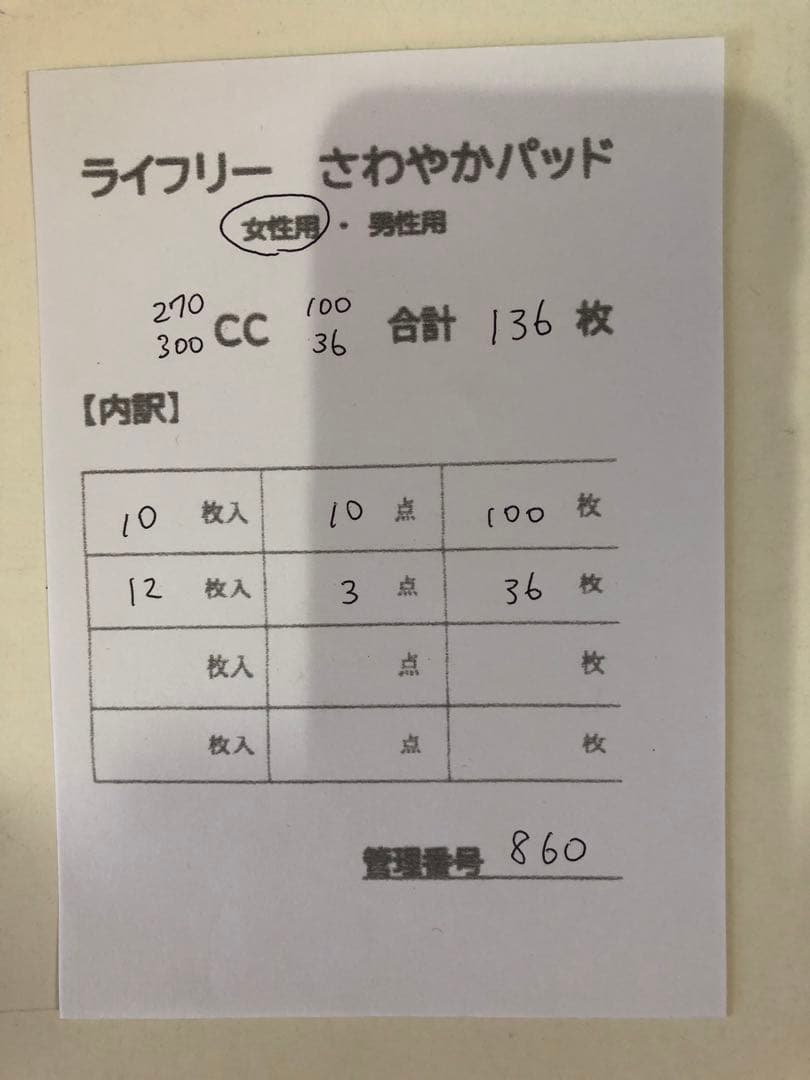 ライフリー さわやかパッド
女性用・男性用
270 300 CC 100 36 合計 136 枚
【内訳】
10 枚入 10 点 100 枚
12 枚入 3 点 36 枚
枚入 点 枚
枚入 点 枚
管理番号 860